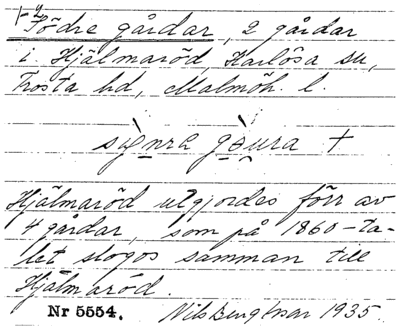 1-4
Södre gårdar, 2 gårdar
i Hjälmaröd, Harlösa sn,
Frosta hd, Malmöh. l.
sy̱nra gɔ̱ura +
Hjälmaröd utgjordes förr av
4 gårdar, som på 1860-ta-
let slogos samman till
Hjälmaröd.
Nr 5554. Nils Bengtsson 1935.